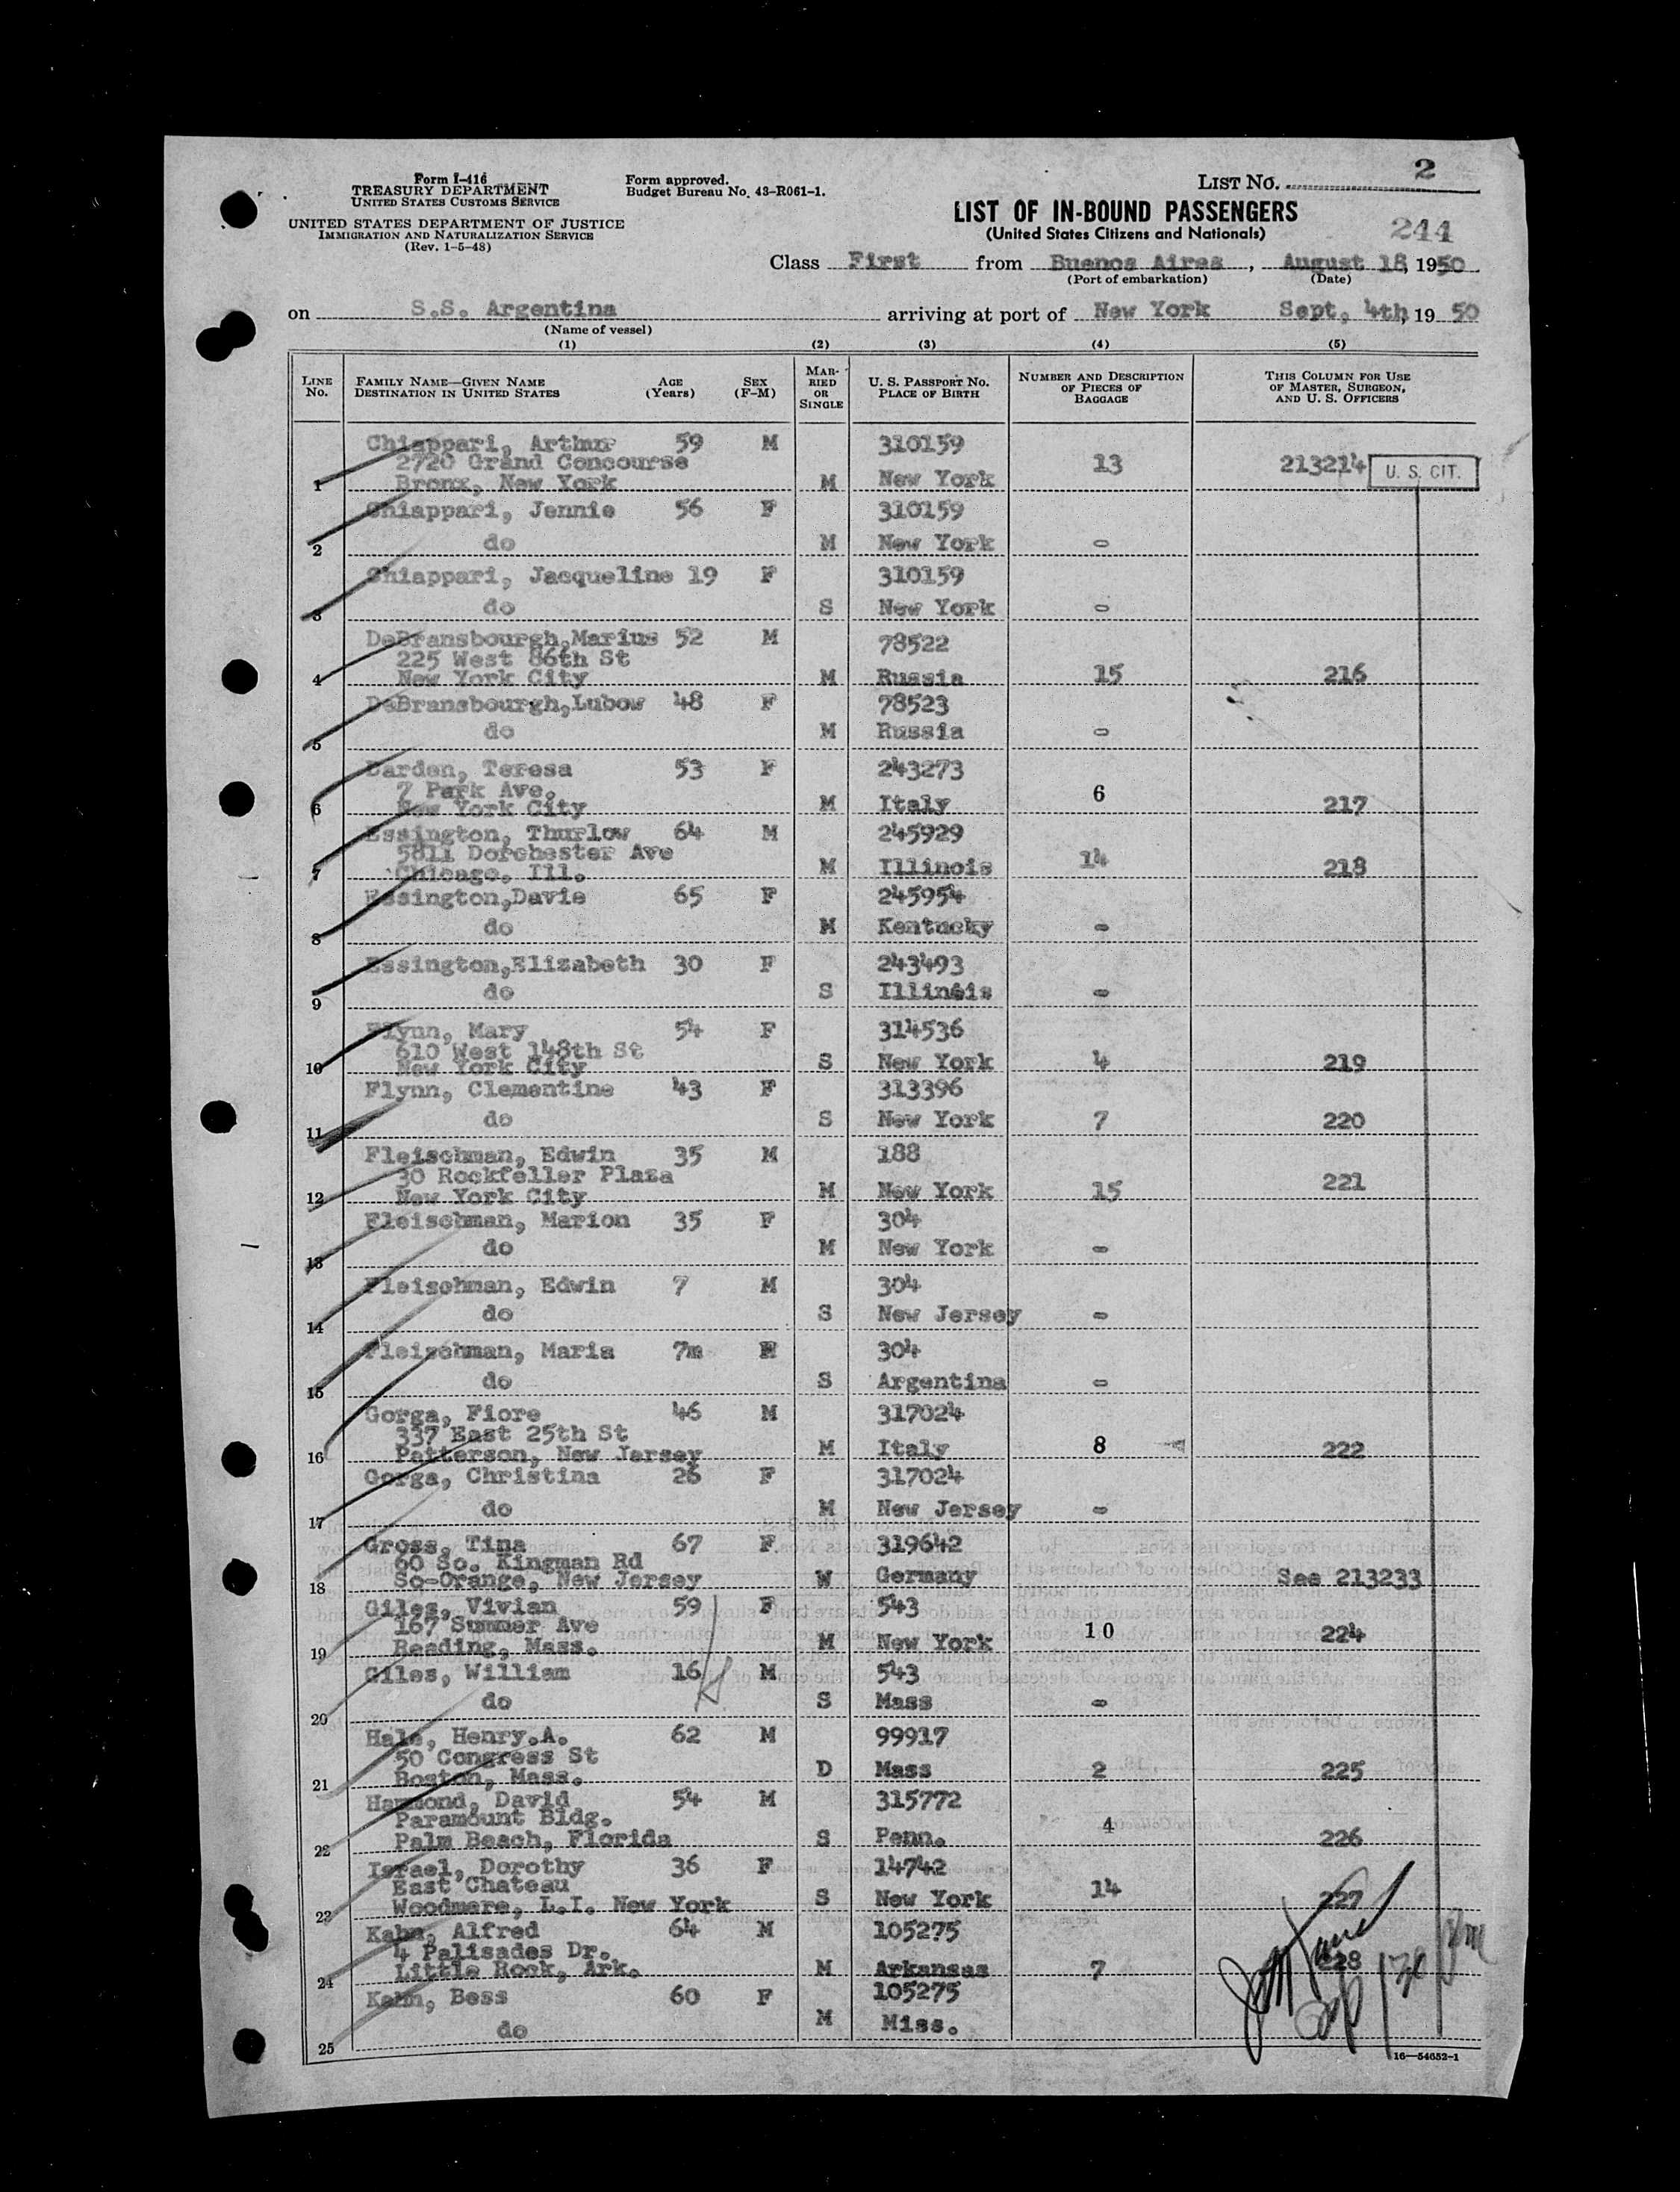 Form I-416
TREASURY DEPARTMENT
UNITED STATES CUSTOMS SERVICE
UNITED STATES DEPARTMENT OF JUSTICE
IMMIGRATION AND NATURALIZATION SERVICE
(Rev. 1-5-48)
Form approved.
Budget Bureau No. 43-R061-1.
LIST NO. 2
LIST OF IN-BOUND PASSENGERS
(United States Citizens and Nationals)
244
Class First from Buenos Aires, August 18, 1950
(Port of embarkation) (Date)
on S.S. Argentina arriving at port of New York Sept, 4th, 19 50
(Name of vessel)
(1) (2) (3) (4) (5)
LINE NO. FAMILY NAME—GIVEN NAME DESTINATION IN UNITED STATES AGE (Years) SEX (F-M) MARRIED OR SINGLE U. S. PASSPORT NO. PLACE OF BIRTH NUMBER AND DESCRIPTION OF PIECES OF BAGGAGE THIS COLUMN FOR USE OF MASTER, SURGEON, AND U. S. OFFICERS
Chiappari, Arthur 59 M 310159
2720 Grand Concourse 13 213214 U. S. CIT.
1 Bronx, New York M New York
Chiappari, Jennie 56 F 310159
2 do M New York -
Chiappari, Jacqueline 19 F 310159
3 do S New York -
DeBransbourgh,Marius 52 M 78522
225 West 86th St
4 New York City M Russia 15 216
DeBransbourgh,Lubow 48 F 78523
5 do M Russia -
Darden, Teresa 53 F 243273
7 Park Ave.
6 New York City M Italy 6 217
Essington, Thurlow 64 M 245929
5811 Dorchester Ave
7 Chicago, Ill. M Illinois 14 218
Essington,Davie 65 F 245954
8 do M Kentucky -
Essington,Elizabeth 30 F 243493
9 do S Illinois -
Flynn, Mary 54 F 314536
610 West 148th St
10 New York City S New York 4 219
Flynn, Clementine 43 F 313396
11 do S New York 7 220
Fleischman, Edwin 35 M 188
30 Rockfeller Plaza
12 New York City M New York 15 221
Fleischman, Marion 35 F 304
13 do M New York -
Fleischman, Edwin 7 M 304
14 do S New Jersey -
Fleischman, Maria 7m 304
15 do S Argentina -
Gorga, Fiore 46 M 317024
337 East 25th St
16 Patterson, New Jersey M Italy 8 222
Gorga, Christina 26 F 317024
17 do M New Jersey -
Gross, Tina 67 F 319642
60 So. Kingman Rd
18 So-Orange, New Jersey W Germany See 213233
Giles, Vivian 59 F 543
167 Summer Ave
19 Reading, Mass. M New York 10 224
Giles, William 16 M 543
20 do S Mass -
Hale, Henry.A. 62 M 99917
50 Congress St
21 Boston, Mass. D Mass 2 225
Hammond, David 54 M 315772
Paramount Bldg.
22 Palm Beach, Florida S Penn. 4 226
Israel, Dorothy 36 F 14742
East Chateau
23 Woodmere, L.I. New York S New York 14 227
Kahn, Alfred 64 M 105275
4 Palisades Dr.
24 Little Rock, Ark. M Arkansas 7 228
Kahn, Bess 60 F 105275
25 do M Miss.
16—54652-1